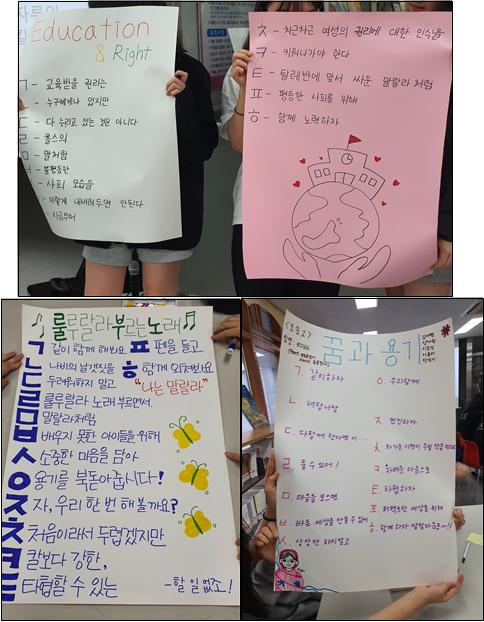 Education
& Right
ㄱ - 교육받을 권리는
- 누구에게나 있지만
ㄷ - 다 누리고 있는 것은 아니다
ㄹ - 롤스의
ㅁ - 말처럼
ㅂ - 불평등한
- 사회 모습을
- 이렇게 내버려두면 안된다
- 지금부터
ㅊ - 차근차근 여성의 권리에 대한 인식을
ㅋ - 키워나가야 한다
ㅌ - 탈레반에 맞서 싸운 말랄라 처럼
ㅍ - 평등한 사회를 위해
ㅎ - 함께 노력하자
룰루랄라 부르는 노래
ㄱ 같이 함께 해봐요.
ㄴ 나비의 날갯짓을
ㄷ 두려워하지 말고
ㄹ 룰루랄라 노래 부르면서
ㅁ 말랄라처럼
ㅂ 배우지 못한 아이들을 위해
ㅅ 소중한 마음을 담아
ㅇ 용기를 북돋아줍시다!
ㅈ 자, 우리 한 번 해 볼까요?
ㅊ 처음이라서 두렵겠지만
ㅋ 칼보다 강한,
ㅌ 타협할 수 있는
ㅍ 펜을 들고
ㅎ 함께 외쳐보요
"나는 말랄라"
- 할 일 없죠!
꿈과 용기
ㄱ. 같이하자
ㄴ. 너랑나랑
ㄷ. 다함께 한다면 이...
ㄹ. 룰 수 있어!
ㅁ. 마음을 모으면
ㅂ. 바른 세상을 만들 수 있어
ㅅ. 상상만 하지말고
ㅇ. 우리함께
ㅈ. 전진하자
ㅋ. 커다란 마음으로
ㅌ. 타협하자
ㅎ. 함께하자 말랄라들아~!!